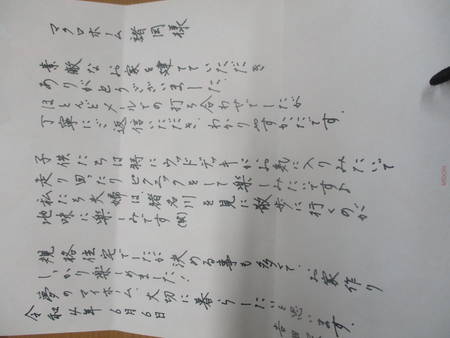 マクロホーム 諸岡様
素敵なお家を建てていただき
ありがとうございました。
ほとんどメールでの打ち合わせでしたが
丁寧にご返信いただき、わかりやすかったです。
子供たちは特にウッドデッキがお気に入りみたいで
走り回ったりピクニックをして楽しみたいです♪
私たち夫婦は猪名川を見に散歩に行くのが
地味に楽しみです(笑)
規格住宅でしたが決める事も多くて、お家作り
しっかり楽しめました!
夢のマイホーム、大切に暮らしたいと思います。
令和4年6月6日